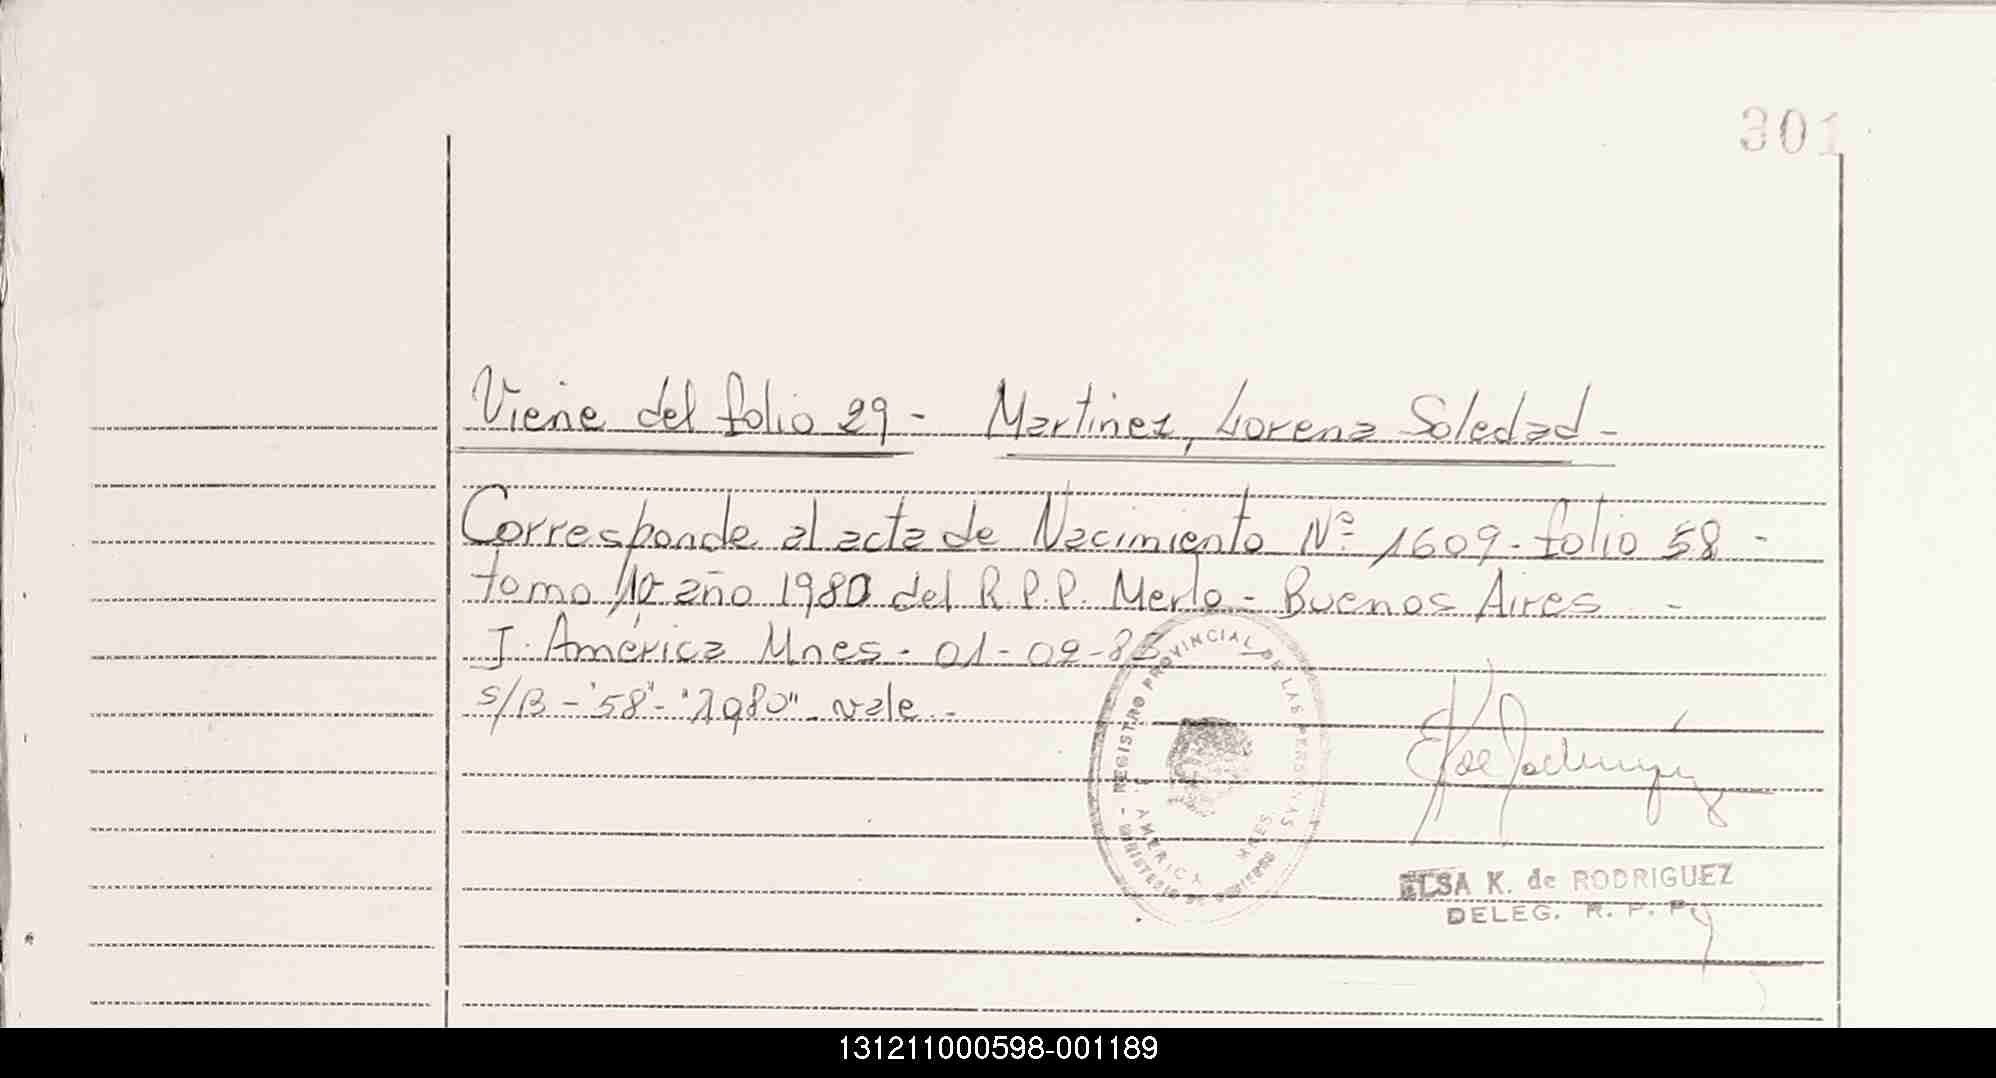 301
Viene del folio 29 - Martinez, Lorena Soledad -
Corresponde al acta de Nacimiento Nº 1609 - folio 58 -
tomo año 1980 del R.P.P. Merlo - Buenos Aires -
I. América Mnes - 01-02-83
s/B - "58" - "1980" vale -
REGISTRO PROVINCIAL DE LAS PERSONAS
- MINISTERIO DE GOBIERNO
AMERICA
ELSA K. de RODRIGUEZ
DELEG. R. P. P.
131211000598-001189